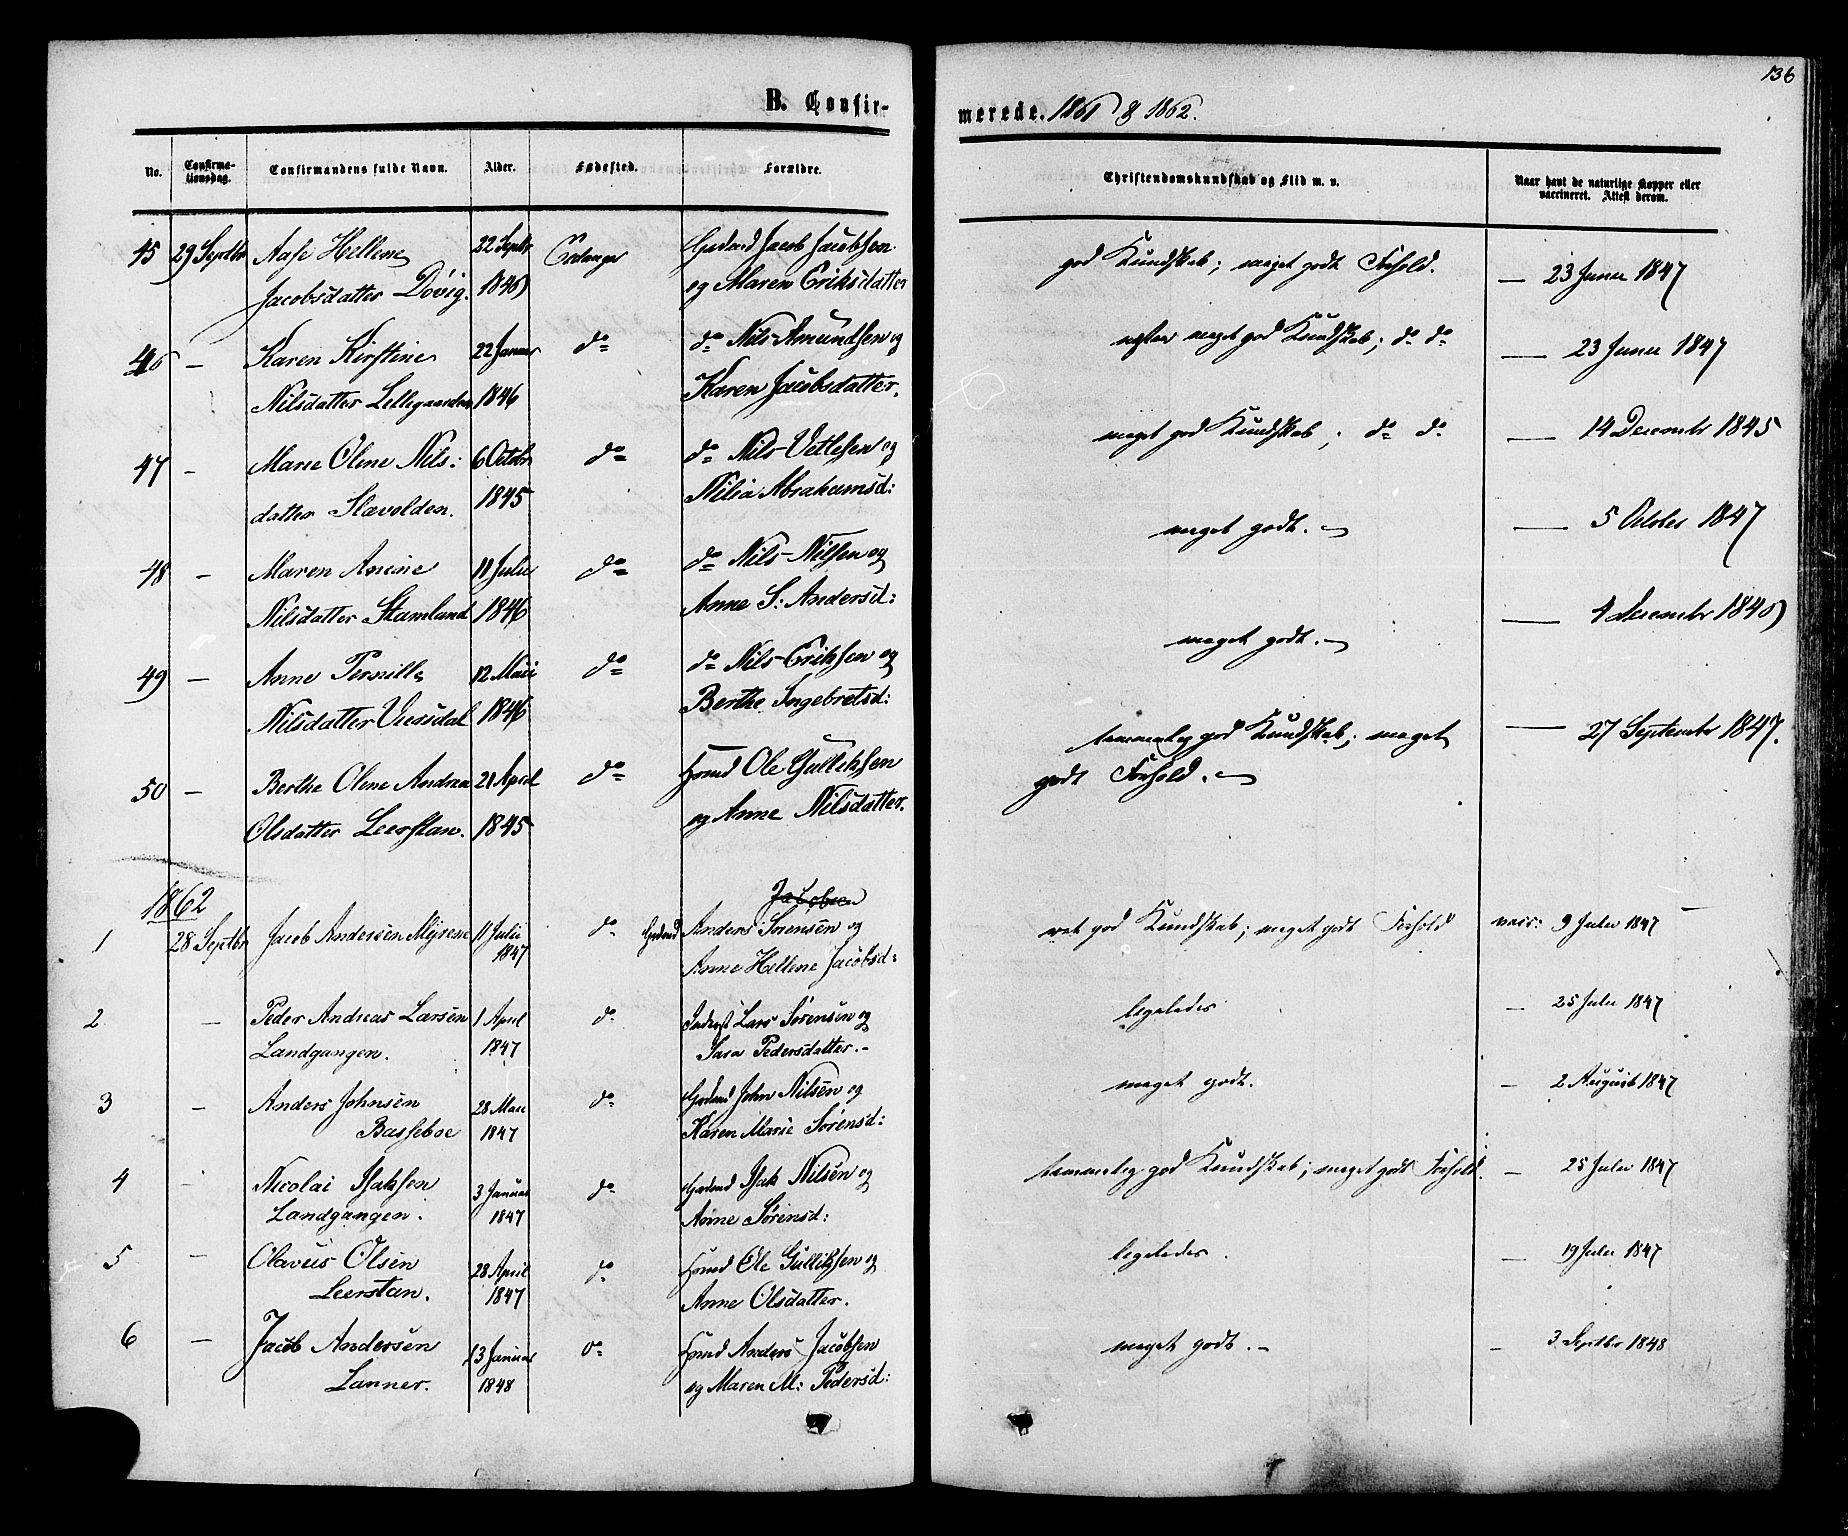 136
B. Confirmerede. 1861 & 1862.
No. Confirmationsdag. Confirmandens fulde Navn. Alder. Fødested. Forældre. Christendomskundskab og Flid m. v. Naar havt de naturlige Kopper eller vaccineret. Attest derom.
45 29 Septbr Aase Hellene 22 Septbr Gaard Jacob Jacobsen god Kundskab; meget godt Forhold. — 23 Juni 1847
Jacobsdatter Døvig. og Maren Eriksdatter
46 — Karen Kirstine 22 Januar do do Nils Amundsen og meget god Kundskab; do do — 23 Juni 1847
Nilsdatter Lillegaarden 1846 Karen Jacobsdatter.
47 — Marie Oline Nils: 6 Octobr do do Nils Vetlesen og meget god Kundskab; do do — 14 December 1845
datter Slævolden. 1845 Nilia Abrahamsd:
48 — Maren Anine 11 Julie do do Nils Nilsen og meget godt. — 5 October 1847
Nilsdatter Stamland 1846 Anne S: Andersd:
49 — Anne Pernille 12 Mai do do Nils Eriksen og meget godt. — 4 December 1846
Nilsdatter Viersdal 1846 Berthe Ingebretsd:
50 — Berthe Oline Andrea 21 April do Husmd Ole Gulliksen temmelig god Kundskab; meget — 27 September 1847.
Olsdatter Leerstan. 1845 og Anne Nilsdatter. godt Forhold.
1862
1 28 Septbr Jacob Andersen Myrene 11 Julie do Gaardmd Anders Sørensen og ret god Kundskab; meget godt Forhold vacc: 9 Julie 1847
1847 Anne Hellene Jacobsd:
2 — Peder Andreas Larsen 1 April do Inderst Lars Sørensen og ligeledes — 25 Julie 1847
Landgangen. 1847 Sara Pedersdatter.
3 — Anders Johnsen 28 Mai do Gaardmd John Nilsen og meget godt. — 2 August 1847
Basseboe 1847 Karen Marie Sørensd:
4 — Nicolai Isaksen 3 Januar do Gaardmd Isak Nilsen og temmelig god Kundskab; meget godt Forhold. — 25 Julie 1847
Landgangen. 1847 Anne Sørensd:
5 — Olavus Olsen 28 April do Husmd Ole Gulliksen og ligeledes. — 19 Julie 1847
Leerstan. 1847 Anne Olsdatter.
6 — Jacob Andersen 13 Januar do Husmd Anders Jacobsen meget godt. — 3 Septbr 1848
Lanner. 1848 og Maren M: Pedersd: